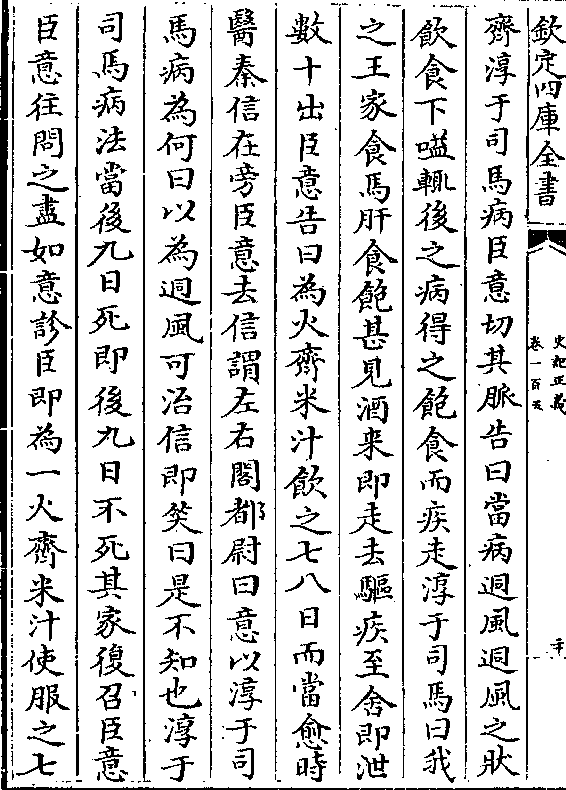 欽定四庫全書
史記正義
卷一百五
二十
齊淳于司馬病臣意切其脈告曰當病迵風迵風之狀
飲食下嗌輒後之病得之飽食而疾走淳于司馬曰我
之王家食馬肝食飽甚見酒来即走去驅疾至舍即泄
數十出臣意告曰為火齊米汁飲之七八日而當愈時
醫秦信在旁臣意去信謂左右閣都尉曰意以淳于司
馬病為何曰以為迵風可治信即笑曰是不知也淳于
司馬病法當後九日死即後九日不死其家復召臣意
臣意往問之盡如意診臣即為一火齊米汁使服之七